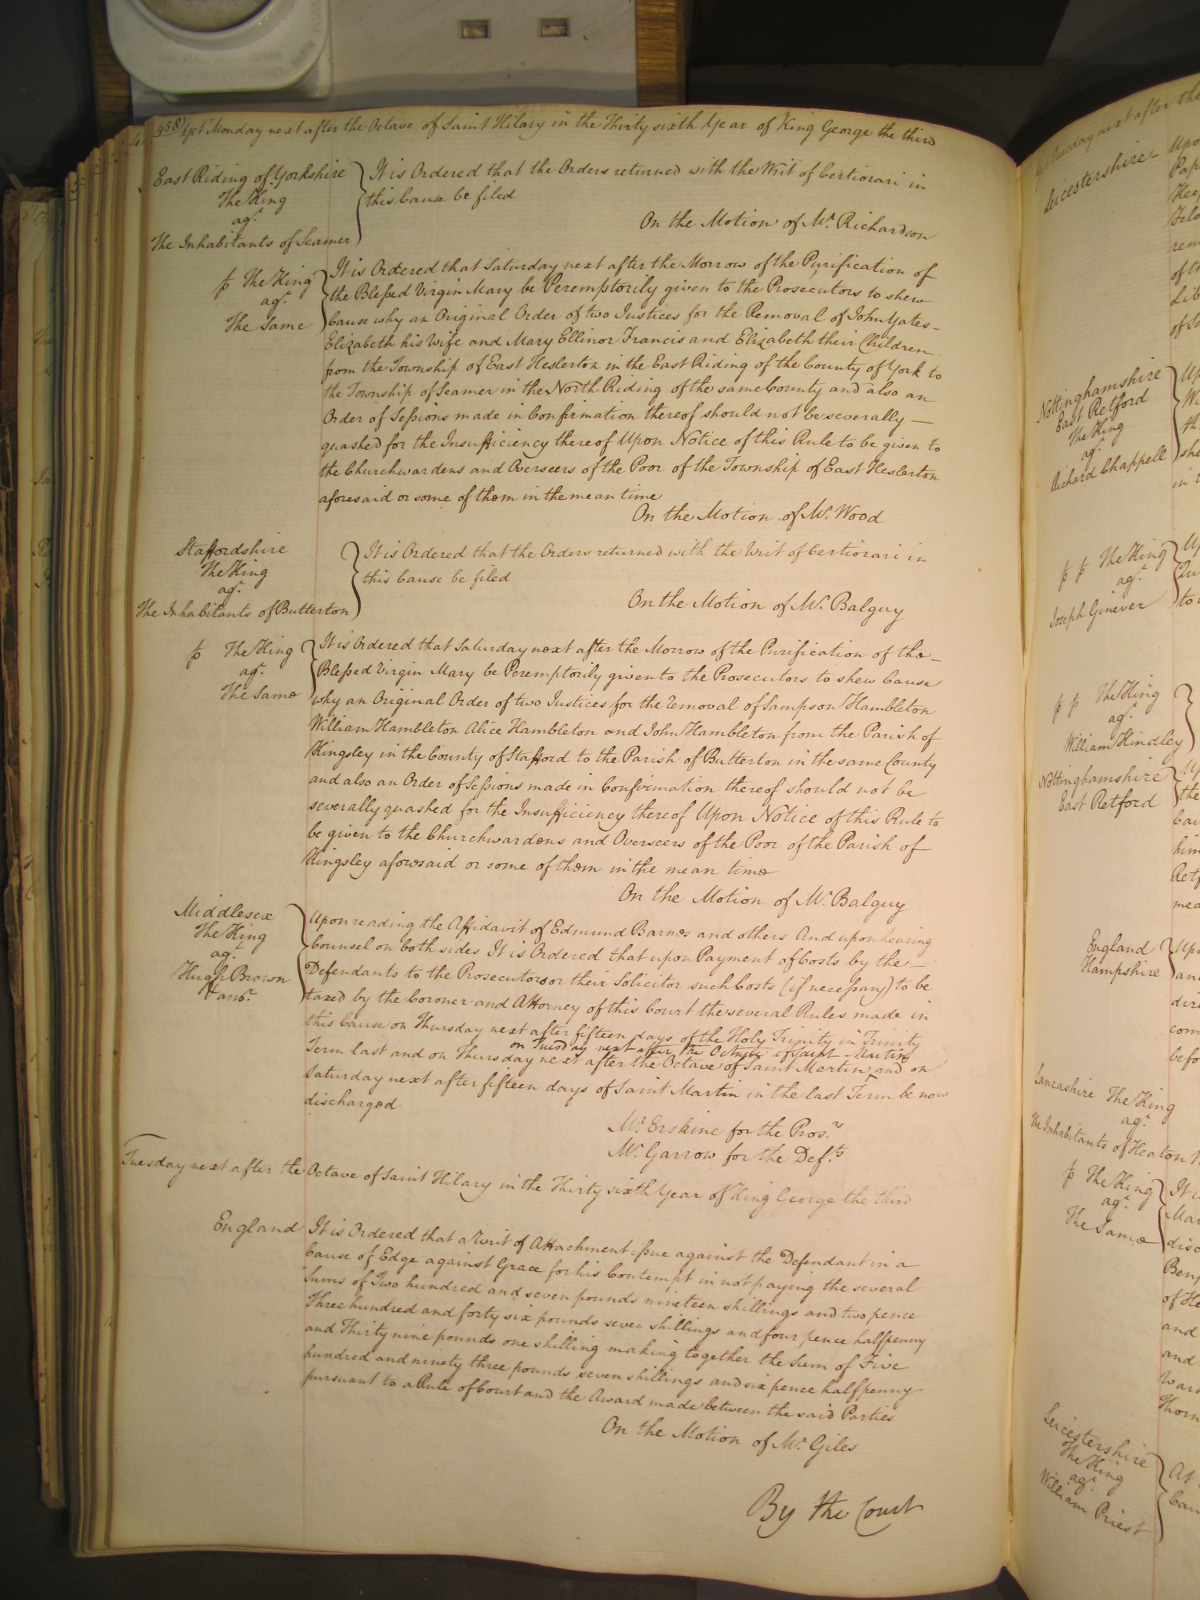 458 Yet Monday next after the Octave of Saint Hilary in the Thirty sixth Year of King George the third
East Riding of Yorkshire
The King
agt.
The Inhabitants of Seamer
It is Ordered that the Orders returned with the Writ of Certiorari in
this Cause be filed
On the Motion of Mr. Richardson
p The King
agt.
The Same
It is Ordered that Saturday next after the Morrow of the Purification of
the Blessed Virgin Mary be Peremptorily given to the Prosecutors to shew
Cause why an Original Order of two Justices for the Removal of John Yates
Elizabeth his Wife and Mary Ellinor Francis and Elizabeth their Children
from the Township of East Heslerton in the East Riding of the County of York to
the Township of Seamer in the North Riding of the same County and also an
Order of Sessions made in Confirmation thereof should not be severally
quashed for the Insufficiency thereof Upon Notice of this Rule to be given to
the Churchwardens and Overseers of the Poor of the Township of East Heslerton
aforesaid or some of them in the mean time
On the Motion of Mr. Wood
Staffordshire
The King
agt.
The Inhabitants of Butterton
It is Ordered that the Orders returned with the Writ of Certiorari in
this Cause be filed
On the Motion of Mr. Balguy
p The King
agt.
The Same
It is Ordered that Saturday next after the Morrow of the Purification of the
Blessed Virgin Mary be Peremptorily given to the Prosecutors to shew Cause
why an Original Order of two Justices for the Removal of Sampson Hambleton
William Hambleton Alice Hambleton and John Hambleton from the Parish of
Kingsley in the County of Stafford to the Parish of Butterton in the same County
and also an Order of Sessions made in Confirmation thereof should not be
severally quashed for the Insufficiency thereof Upon Notice of this Rule to
be given to the Churchwardens and Overseers of the Poor of the Parish of
Kingsley aforesaid or some of them in the mean time
On the Motion of Mr. Balguy
Middlesex
The King
agt.
Hugh Brown
& anor.
Upon reading the Affidavit of Edmund Barnes and others And upon hearing
Counsel on both sides It is Ordered that upon Payment of Costs by the
Defendants to the Prosecutors or their Solicitor such Costs (if necessary) to be
taxed by the Coroner and Attorney of this Court the several Rules made in
this Cause on Thursday next after fifteen days of the Holy Trinity in Trinity
on Tuesday next after the Octave of Saint Martin
Term last and on Thursday next after the Octave of Saint Martin and on
Saturday next after fifteen days of Saint Martin in the last Term be now
discharged
Mr. Erskine for the Pros.rs
Mr. Garrow for the Def.ts
Tuesday next after the Octave of Saint Hilary in the Thirty sixth Year of King George the third
England
It is Ordered that a Writ of Attachment issue against the Defendant in a
Cause of Edge against Grace for his Contempt in not paying the several
Sums of Two hundred and seven pounds nineteen shillings and two pence
Three hundred and forty six pounds seven shillings and four pence halfpenny
and Thirty nine pounds one shilling making together the Sum of Five
hundred and ninety three pounds seven shillings and six pence halfpenny
pursuant to a Rule of Court and the Award made between the said Parties
On the Motion of Mr. Giles
By the Court
Tuesday next after the
Leicestershire
Nottinghamshire
East Retford
The King
agt.
Richard Chappell
p p The King
agt.
Joseph Ginever
p p The King
agt.
William Hindley
Nottinghamshire
East Retford
England
Hampshire
Lancashire The King
agt.
The Inhabitants of Heaton
p The King
agt.
The Same
Leicestershire
The King
agt.
William Priest